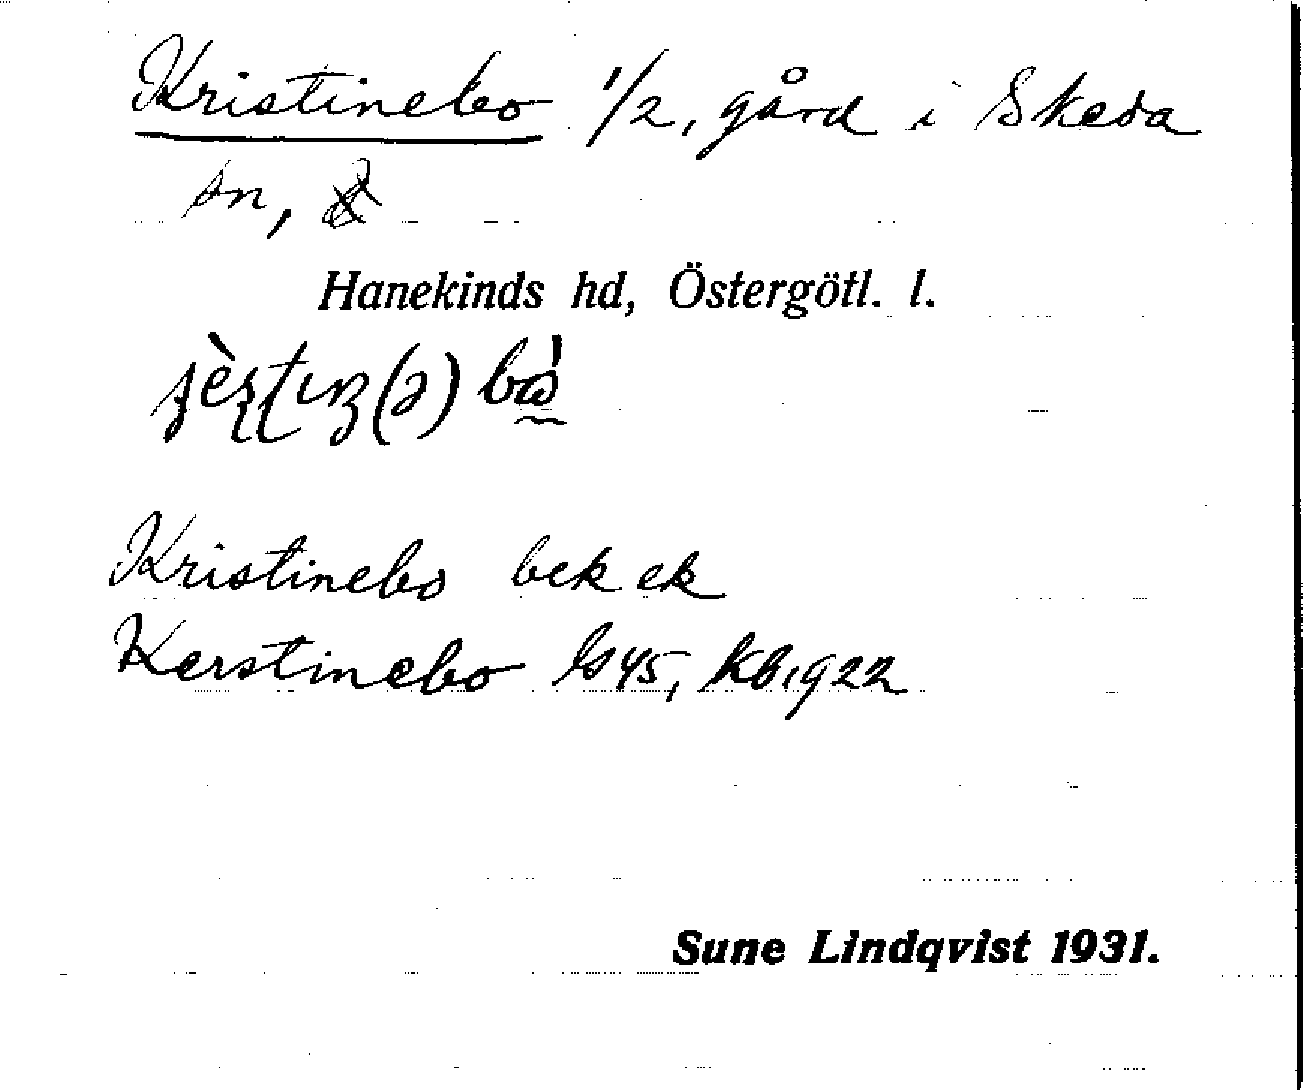 Kristinebo 1/2, gård i Skeda
sn,
Hanekinds hd, Östergötl. l.
Kristinebo bek ek
Kerstinebo ls 45, kb 1922
Sune Lindqvist 1931.